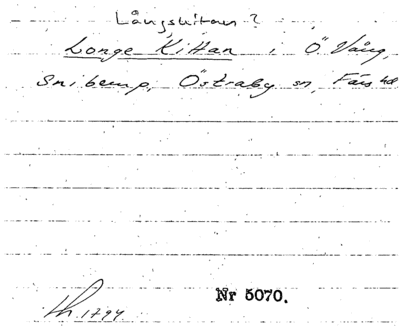 Långskitan?
Longe Kittan i Ö Vång,
Snibemp, Östraby sn, Färs hd
Lh. 1794
Nr 5070.